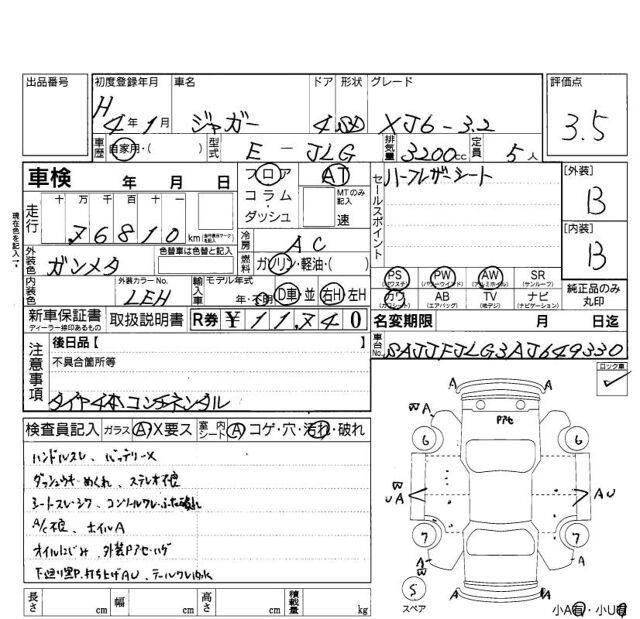 出品番号 初度登録年月 車名 ドア 形状 グレード 評価点
H 4年1月 ジャガー 4 SD XJ6-3.2 3.5
車歴 自家用・( ) 型式 E-JLG 排気量 3200cc 定員 5人
車検 年 月 日 フロア コラム・ダッシュ AT MTのみ記入 速 セールスポイント ハーフレザーシート [外装] B
現在色を記入→
走行 十 万 千 百 十 76810 km
[内装] B
外装色 ガンメタ 色替車は色替と記入 冷房 AC
燃料 ガソリン・軽油・( )
内装色 外装カラーNo. LEH 輸入車 モデル年式 年・ D車・並 右H 左H
PS (パワステ) PW (パワーウインド) AW (アルミホイル) SR (サンルーフ)
カワ (カワシート) AB (エアバッグ) TV (地デジ) ナビ (ナビゲーション)
純正品のみ丸印
新車保証書 ディーラー捺印あるもの 取扱説明書 R券 ¥ 11,740 名変期限 月 日迄
注意事項 後日品【 】 車台No. SAJJFJLG3AJ649330
不具合箇所等
ロック車 ✓
タイヤ4本コンチネンタル
検査員記入 ガラス A X要ス 室内シート A コゲ・穴・汚れ・破れ
ハンドルスレ、バッテリーX
ダッシュウキ めくれ、ステレオ不良
シートスレ・シワ、コンソールワレ・ふた破れ
A/C不良、ホイルA
オイルにじみ、外装Pアセ・ハゲ
下廻り黒P.打ち上げAU、テールワレ内水
長さ cm 幅 cm 高さ cm 積載量 kg
A A
W A
6 Pアセ 6
W UA AU
7 7
A W A
S スペア A A
小A有・小U有